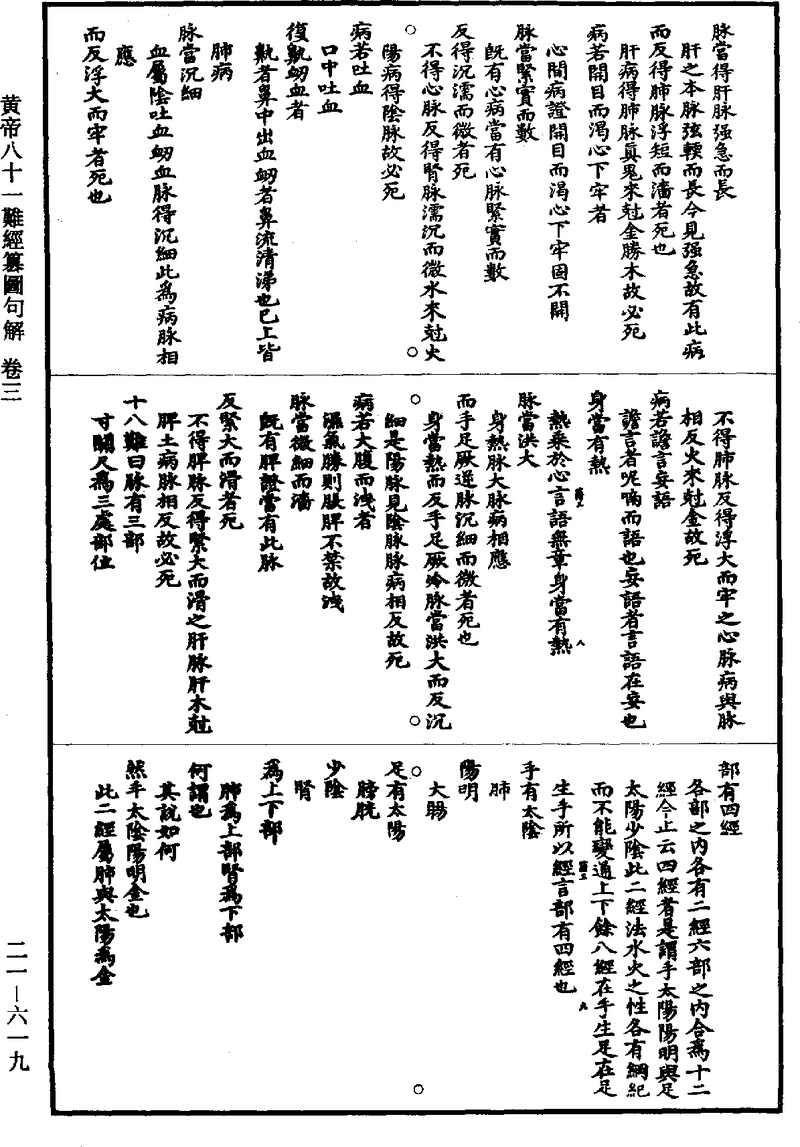 黄帝八十一難經纂圖句解 卷三
二一—六一九
脉當得肝脉强急而長
肝之本脉弦輭而長今見强急故有此病
而反得肺脉浮短而濇者死也
肝病得肺脉真鬼來尅金勝木故必死
病若開目而渴心下牢者
心間病證開目而渴心下牢固不開
脉當緊實而數
旣有心病當有心脉緊實而數
反得沉濡而微者死
不得心脉反得腎脉濡沉而微水來尅火
陽病得陰脉故必死
病若吐血
口中吐血
復鼽衂血者
鼽者鼻中出血衂者鼻流清涕也已上皆
肺病
脉當沉細
血屬陰吐血衂血脉得沉細此為病脉相
應
而反浮大而牢者死也
不得肺脉反得浮大而牢之心脉病與脉
相反火來尅金故死
病若譫言妄語
譫言者呢喃而語也妄語者言語在妄也
身當有熱
熱乘於心言語無章身當有熱
脉當洪大
身熱脉大脉病相應
而手足厥逆脉沉細而微者死也
身當熱而反手足厥冷脉當洪大而反沉
細是陽脉見陰脉脉病相反故死
病若大腹而洩者
濕氣勝則脹脾不禁故洩
脉當微細而濇
旣有脾證當有此脉
反緊大而滑者死
不得脾脉反得緊大而滑之肝脉肝木尅
脾土病脉相反故必死
十八難曰脉有三部
寸關尺為三處部位
部有四經
各部之內各有二經六部之內合為十二
經今止云四經者是謂手太陽陽明與足
太陽少陰此二經法水火之性各有綱紀
而不能變通上下餘八經在手生足在足
生手所以經言部有四經也
手有太陰
肺
陽明
大腸
足有太陽
膀胱
少陰
腎
為上下部
肺為上部腎為下部
何謂也
其說如何
然手太陰陽明金也
此二經屬肺與太陽為金